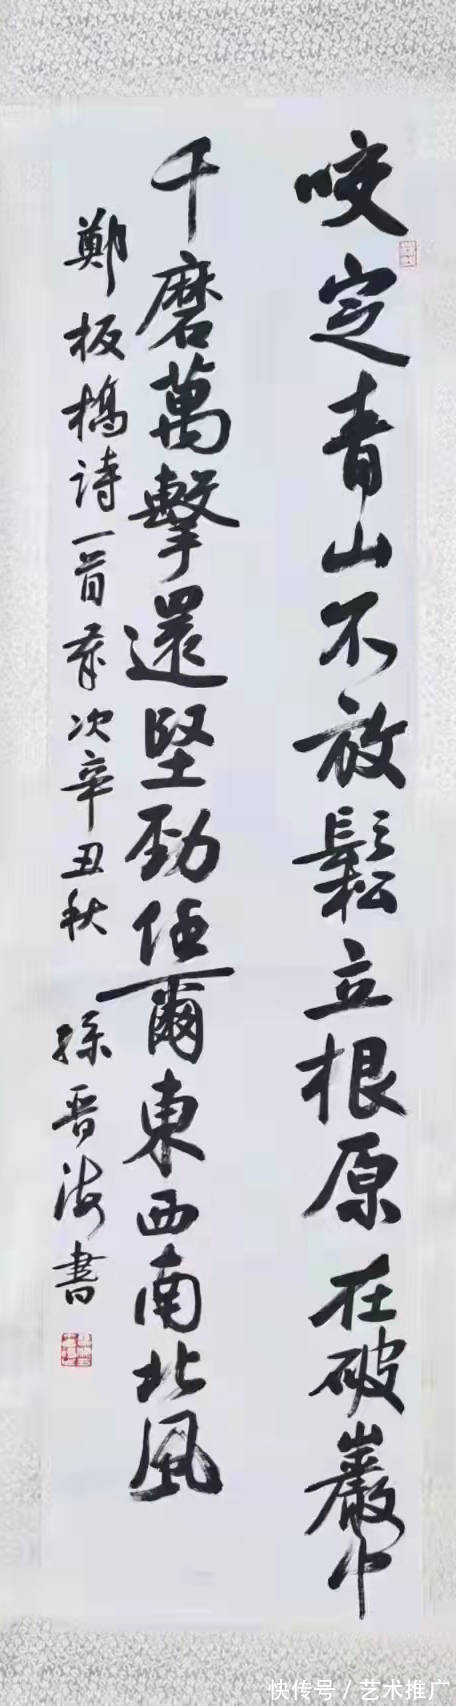 咬定青山不放鬆立根原在破巖中
千磨萬擊還堅勁任爾東西南北風
鄭板橋詩一首歲次辛丑秋 孫晋海書
快传号/艺术推广